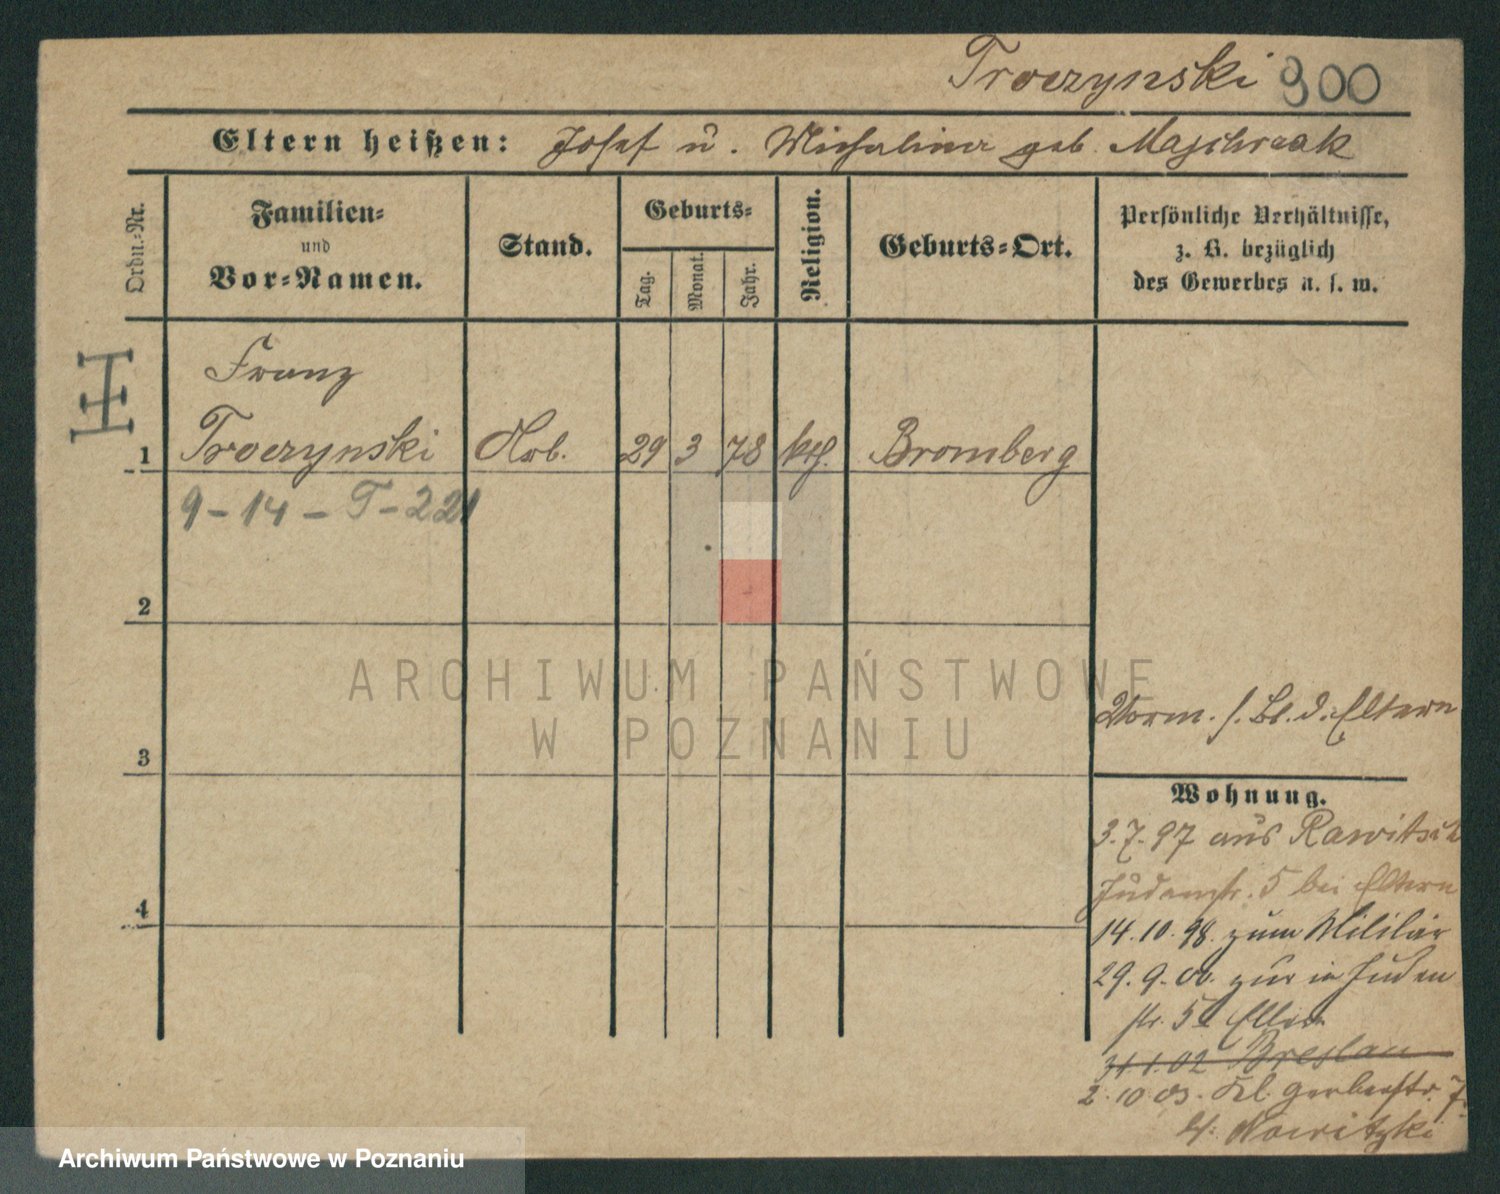 Troczynski 900
Eltern heißen: Josef u. Michalina geb. Majchrzak
Ordn.-Nr.
Familien-
und
Vor-Namen.
Stand.
Geburts-
Tag.
Monat.
Jahr.
Religion.
Geburts-Ort.
Persönliche Verhältnisse,
z. B. bezüglich
des Gewerbes u. s. w.
Franz
1 Troczynski Arb. 29 3 78 kth. Bromberg
9-14-T-221
2
ARCHIWUM PAŃSTWOWE
W POZNANIU
Vorm. s. Bl. d. Eltern
3
Wohnung.
3.7.97 aus Rawitsch
Judenstr. 5 bei Eltern
4
14.10.98. zum Militär
29.9.00. zur in Juden
str. 5 Eltern
31.1.02 Breslau
2.10.03. Kl. Gerberstr. 7.
b/ Nowitzki
Archiwum Państwowe w Poznaniu